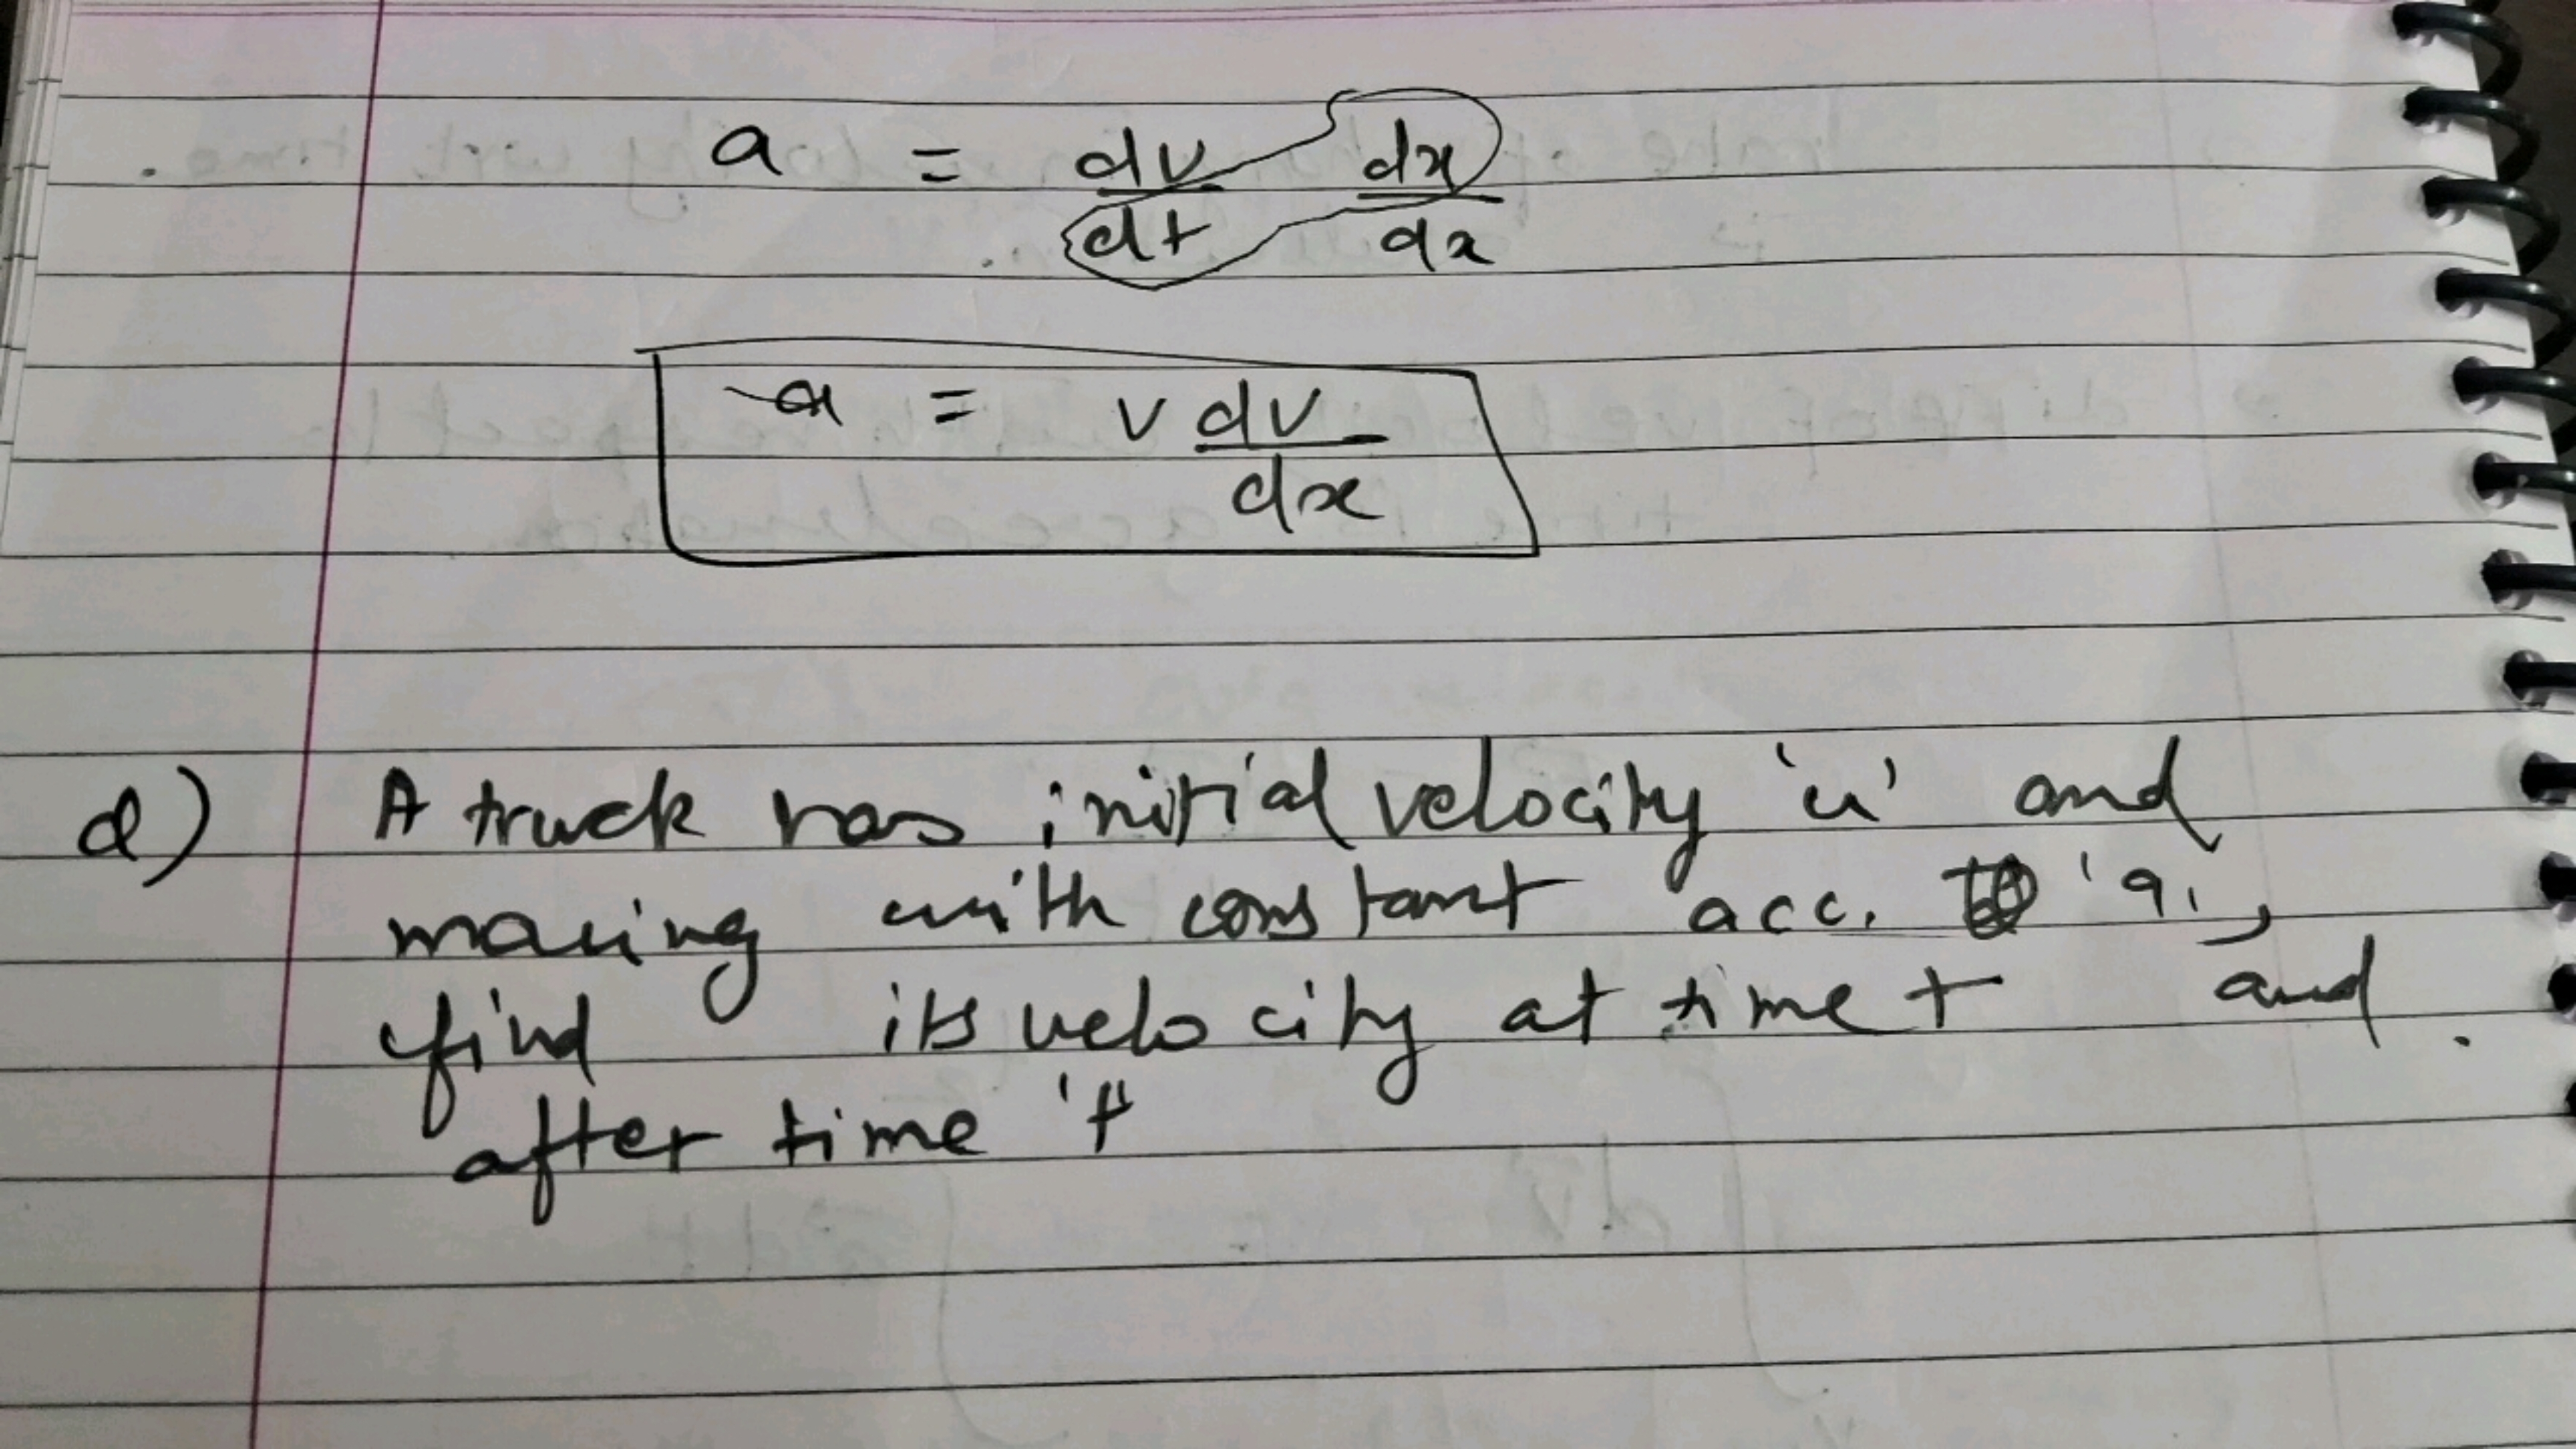 a = dv/dt dx/dx
a = v dv/dx
Q) A truck has initial velocity 'u' and
moving with constant acc. 'a',
find its velocity at time t and
after time 't'